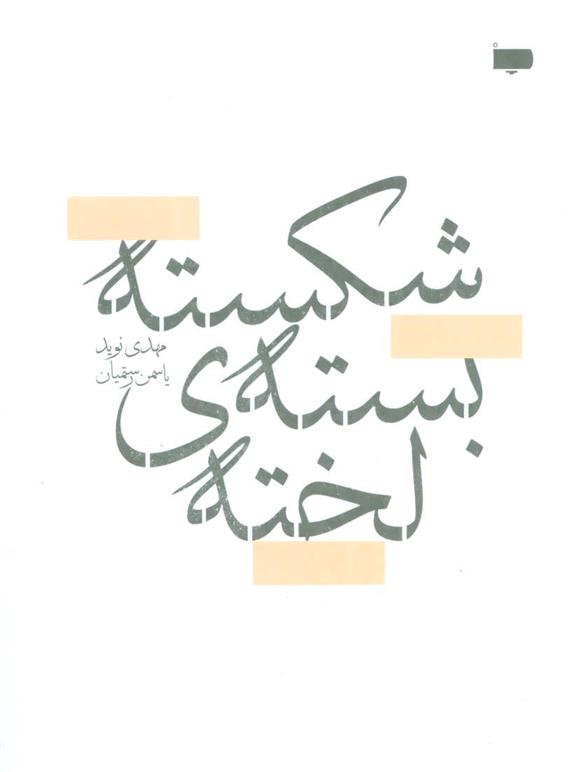 شکسته
بسته‌ی
لخته
مهدی نوید
یاسمن رستمیان